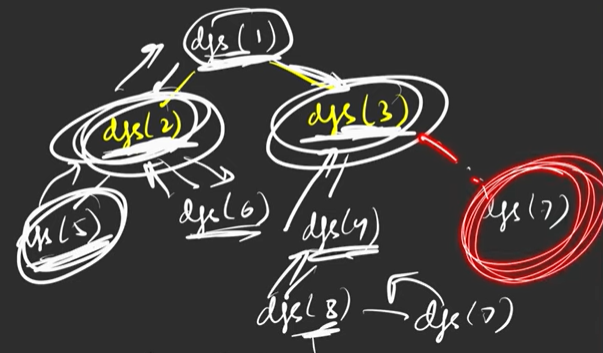 dfs(1)
dfs(2) dfs(3)
dfs(5) dfs(6) dfs(4) dfs(7)
dfs(8) dfs(7)